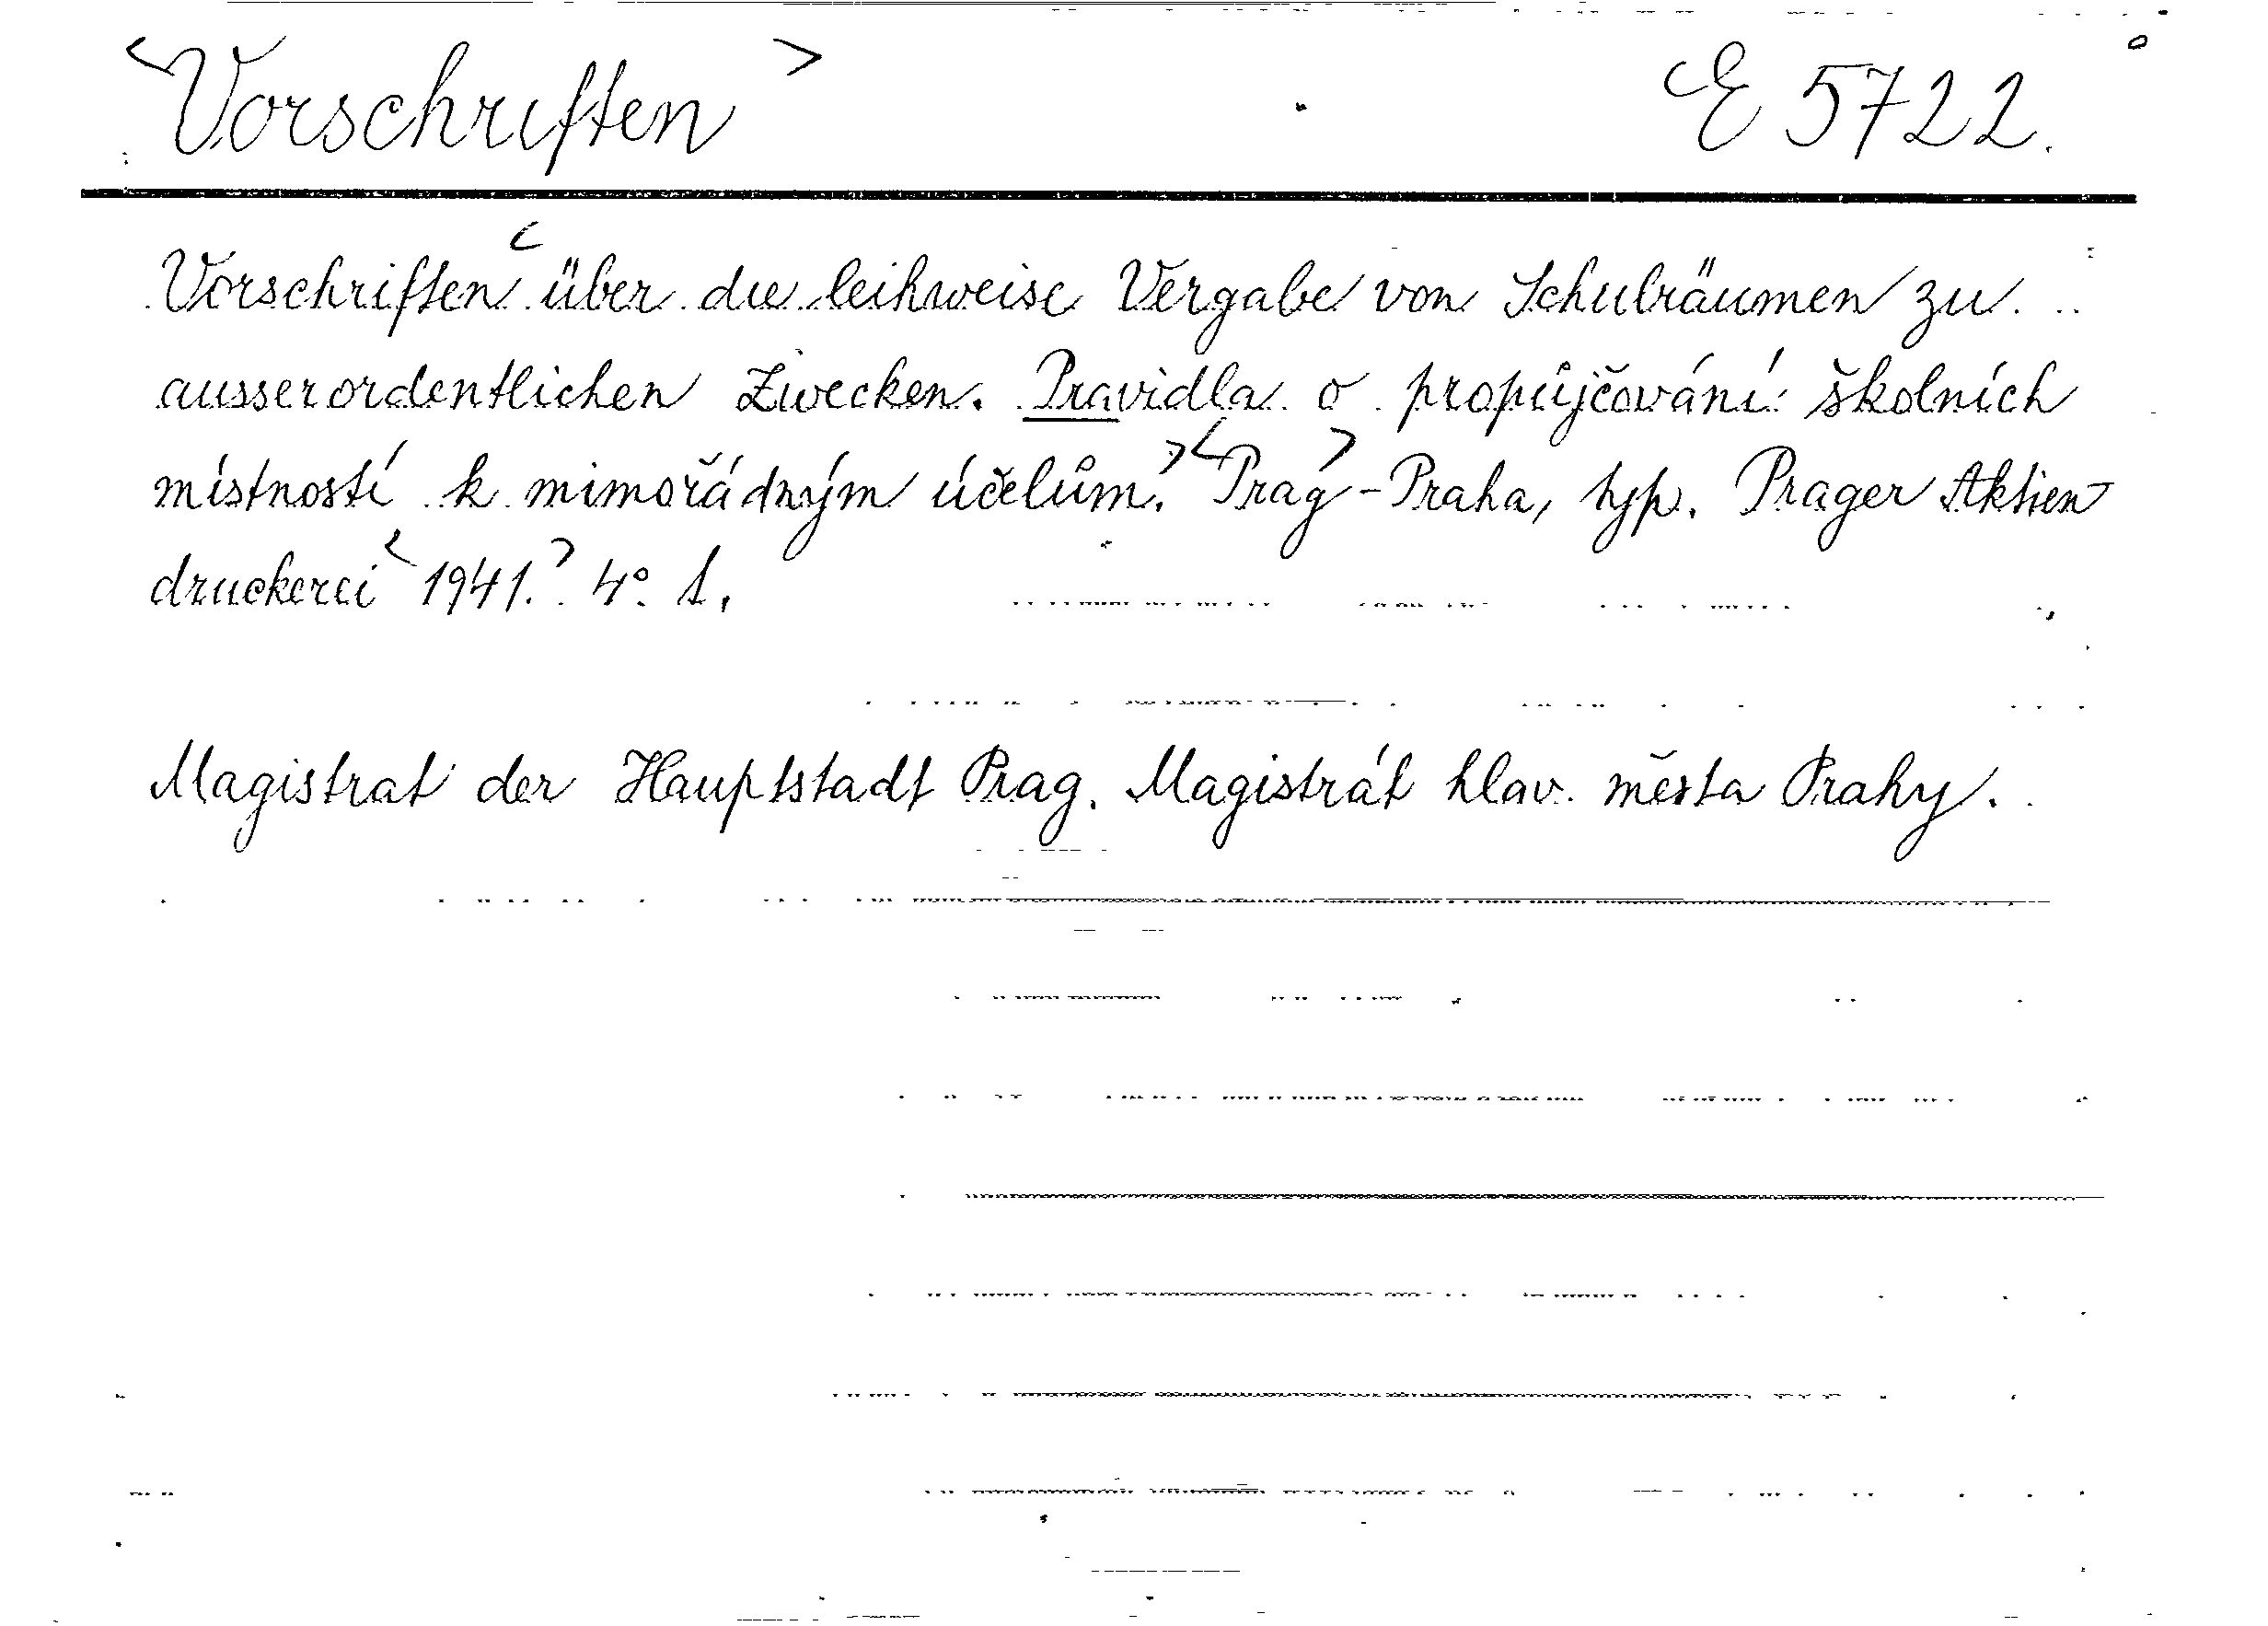 <Vorschriften> E 5722.
Vorschriften < über die leihweise Vergabe von Schulräumen zu
ausserordentlichen Zwecken. Pravidla o propůjčování školních
místností k mimořádným účelům.> <Prag> - Praha, typ. Prager Aktien-
druckerei <1941.> 4° 1.
Magistrat der Hauptstadt Prag. Magistrát hlav. města Prahy.